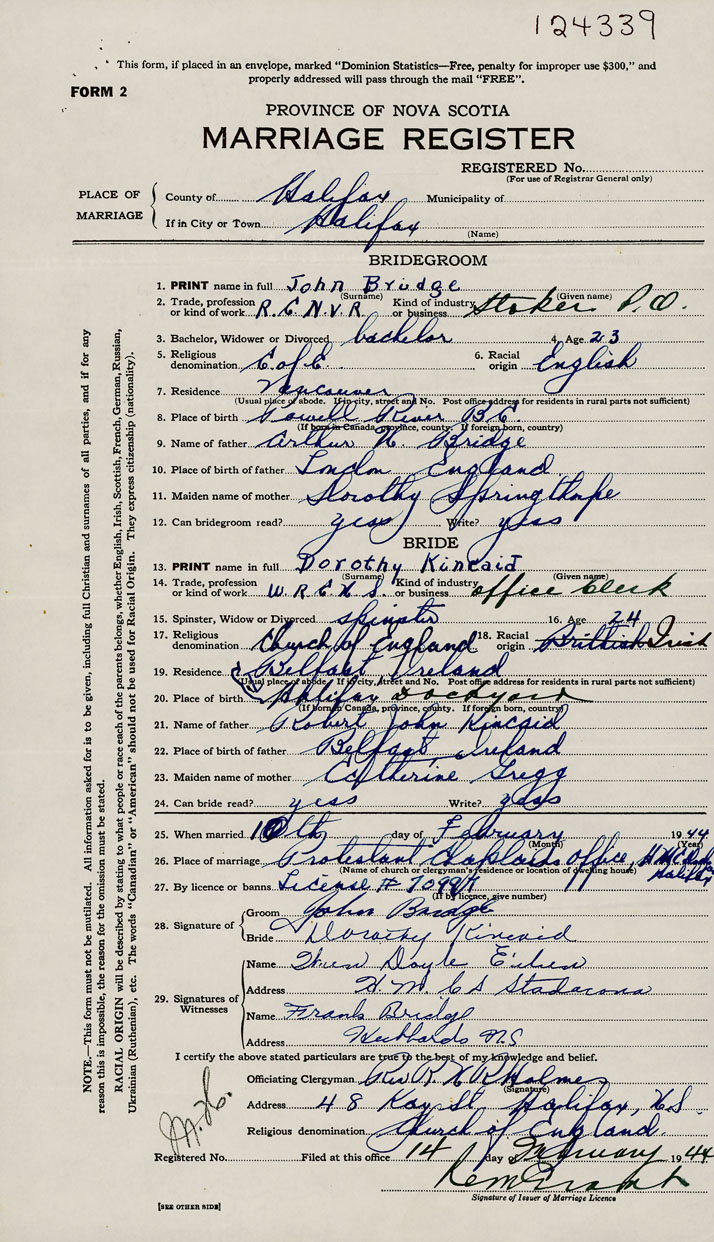 124339
This form, if placed in an envelope, marked "Dominion Statistics—Free, penalty for improper use $300," and
properly addressed will pass through the mail "FREE".
FORM 2
PROVINCE OF NOVA SCOTIA
MARRIAGE REGISTER
REGISTERED No.
(For use of Registrar General only)
PLACE OF MARRIAGE
County of Halifax Municipality of
If in City or Town Halifax
(Name)
BRIDEGROOM
1. PRINT name in full John Bridge
(Surname) (Given name)
2. Trade, profession or kind of work R.C.N.V.R. Kind of industry or business Stoker P.O.
3. Bachelor, Widower or Divorced bachelor 4. Age 23
5. Religious denomination C. of E. 6. Racial origin English
7. Residence Vancouver
(Usual place of abode. If in city, street and No. Post office address for residents in rural parts not sufficient)
8. Place of birth Powell River B.C
(If born in Canada, province, county. If foreign born, country)
9. Name of father Arthur Bridge
10. Place of birth of father London England
11. Maiden name of mother Dorothy Springthope
12. Can bridegroom read? yess Write? yess
BRIDE
13. PRINT name in full Dorothy Kincaid
(Surname) (Given name)
14. Trade, profession or kind of work W.R.C.N.S. Kind of industry or business office clerk
15. Spinster, Widow or Divorced spinster 16. Age 24
17. Religious denomination Church of England 18. Racial origin Brittish Irish
19. Residence Belfast Ireland
(Usual place of abode. If in city, street and No. Post office address for residents in rural parts not sufficient)
20. Place of birth Halifax Dockyard
(If born in Canada, province, county. If foreign born, country)
21. Name of father Robert John Kincaid
22. Place of birth of father Belfast Ireland
23. Maiden name of mother Catherine Gregg
24. Can bride read? yess Write? yess
25. When married 10th day of February 1944
(Month) (Year)
26. Place of marriage Protestant Chaplains office, Halifax
(Name of church or clergyman's residence or location of dwelling house)
27. By licence or banns License #
(If by licence, give number)
28. Signature of
Groom John Bridge
Bride Dorothy Kincaid
29. Signatures of Witnesses
Name Doyle
Address H.M.C.S Stadacona
Name Frank Bridge
Address Hubbards N.S
I certify the above stated particulars are true to the best of my knowledge and belief.
Officiating Clergyman Rev R Holmes
(Signature)
Address 48 Kay St Halifax, N.S.
Religious denomination Church of England.
Registered No. Filed at this office 14 day of February 1944
Signature of Issuer of Marriage Licence
[SEE OTHER SIDE]
NOTE.—This form must not be mutilated. All information asked for is to be given, including full Christian and surnames of all parties, and if for any
reason this is impossible, the reason for the omission must be stated.
RACIAL ORIGIN will be described by stating to what people or race each of the parents belongs, whether English, Irish, Scottish, French, German, Russian,
Ukrainian (Ruthenian), etc. The words "Canadian" or "American" should not be used for Racial Origin. They express citizenship (nationality).